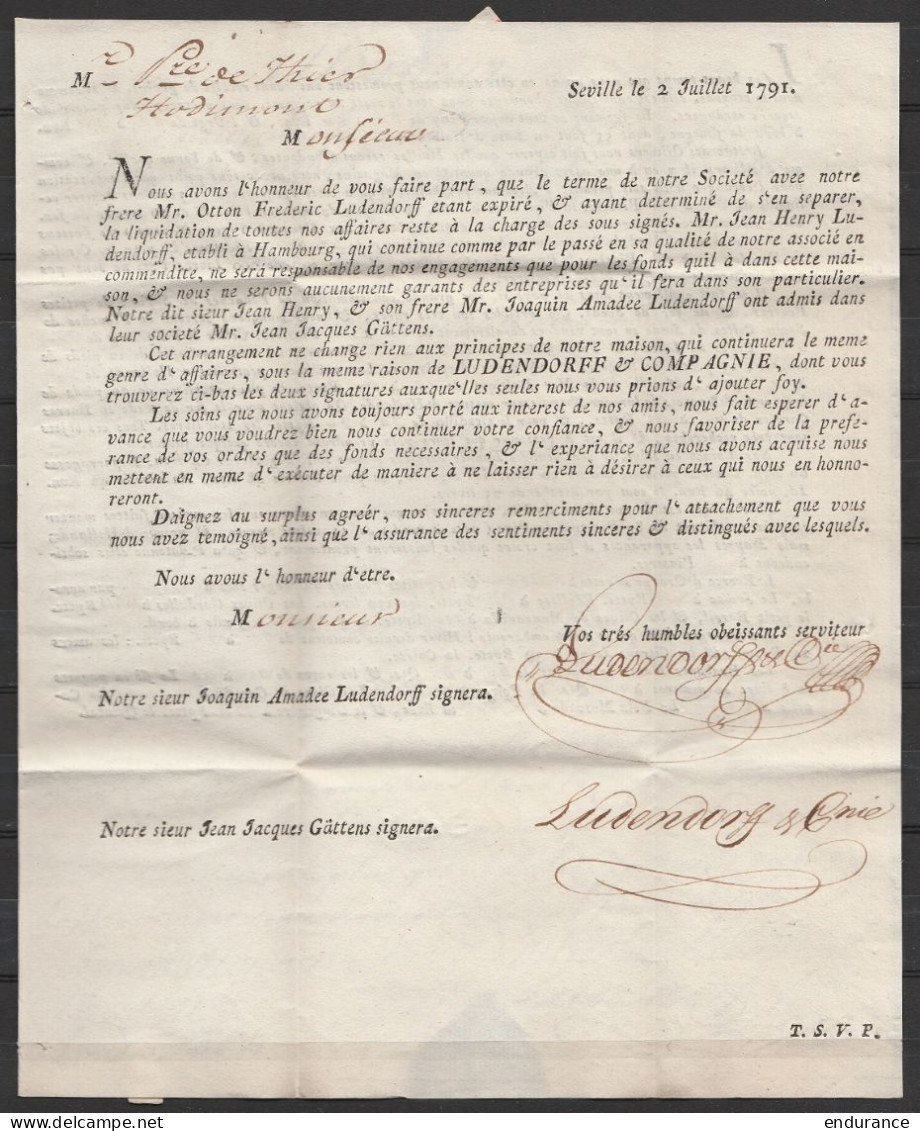 Mr Pre de Thier
Hodimont
Seville le 2 Juillet 1791.
Monsieur
Nous avons l'honneur de vous faire part, que le terme de notre Societé avec notre
frere Mr. Otton Frederic Ludendorff etant expiré, & ayant determiné de s'en separer,
la liquidation de toutes nos affaires reste à la charge des sous signés. Mr. Jean Henry Lu-
dendorff, etabli à Hambourg, qui continue comme par le passé en sa qualité de notre associé en
commendite, ne será responsable de nos engagements que pour les fonds quil à dans cette mai-
son, & nous ne serons aucunement garants des entreprises qu'il fera dans son particulier.
Notre dit sieur Jean Henry, & son frere Mr. Joaquin Amadee Ludendorff ont admis dans
leur societé Mr. Jean Jacques Gättens.
Cet arrangement ne change rien aux principes de notre maison, qui continuera le meme
genre d'affaires, sous la meme raison de LUDENDORFF & COMPAGNIE, dont vous
trouverez ci-bas les deux signatures auxquelles seules nous vous prions d'ajouter foy.
Les soins que nous avons toujours porté aux interest de nos amis, nous fait esperer d'a-
vance que vous voudrez bien nous continuer votre confiance, & nous favoriser de la prefe-
rance de vos ordres que des fonds necessaires, & l'experiance que nous avons acquise nous
mettent en meme d'exécuter de maniere à ne laisser rien à désirer à ceux qui nous en honno-
reront.
Daignez au surplus agreér, nos sinceres remerciments pour l'attachement que vous
nous avez temoigné, ainsi que l'assurance des sentiments sinceres & distingués avec lesquels.
Nous avous l'honneur d'etre.
Monsieur
Vos trés humbles obeissants serviteur
Ludendorff & Cie
Notre sieur Joaquin Amadee Ludendorff signera.
Ludendorff & Cnie
Notre sieur Jean Jacques Gättens signera.
T. S. V. P.
endurance